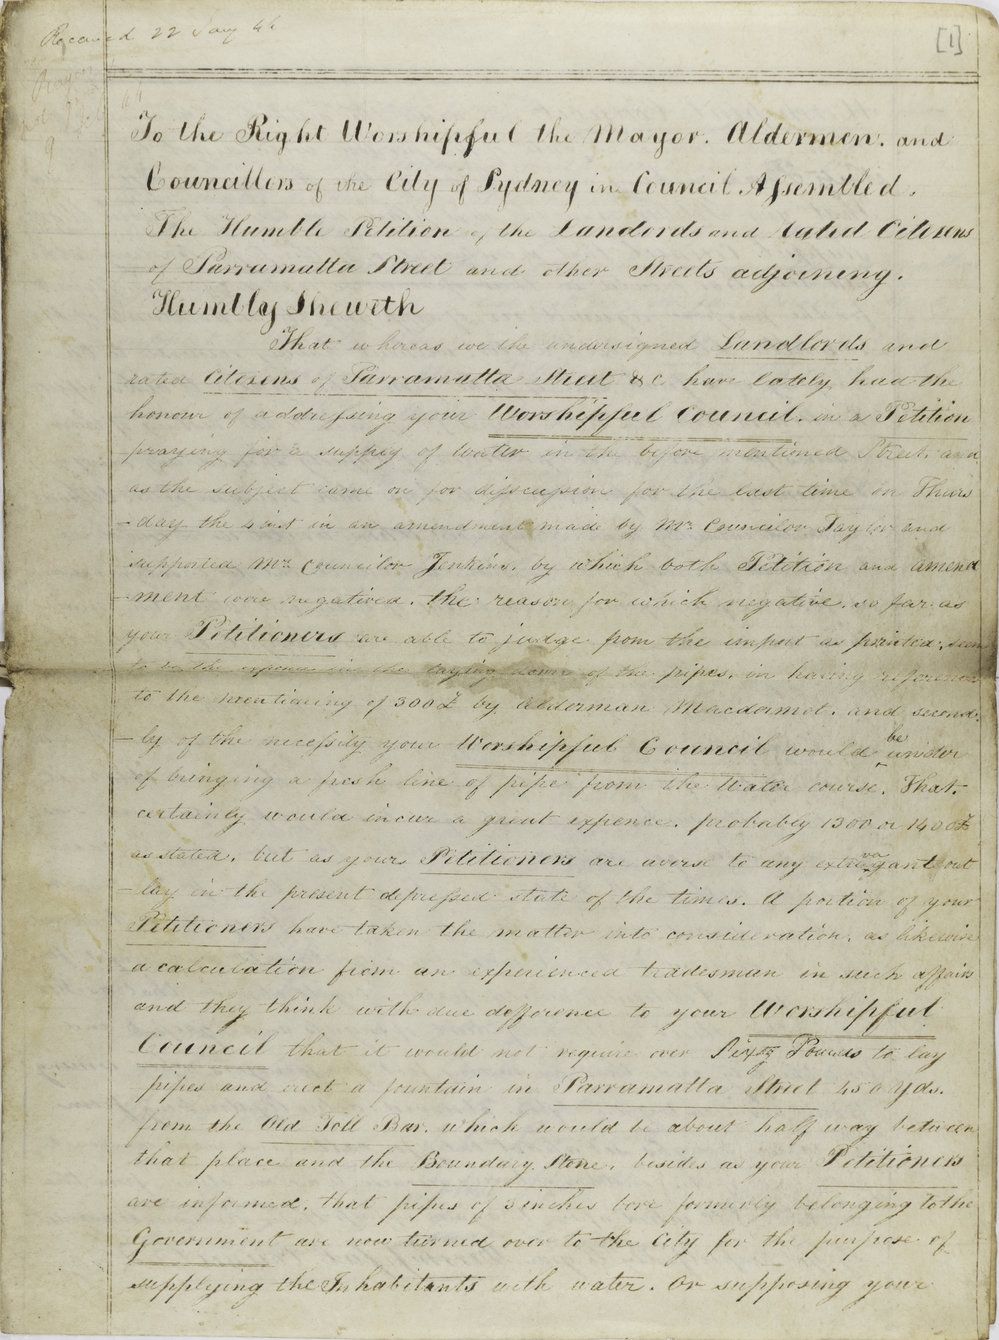 Received 22 Jany 46
[1]
To the Right Worshipful the Mayor. Aldermen. and
Councillors of the City of Sydney in Council Assembled.
The Humble Petition of the Landlords and rated Citizens
of Parramatta Street and other Streets adjoining.
Humbly Sheweth
That whereas we the undersigned Landlords and
rated Citizens of Parramatta Street &c have lately had the
honour of addressing your Worshipful Council. in a Petition
praying for a supply of water in the before mentioned Street. and
as the subject came on for disscussion for the last time on Thurs
-day the 4 inst in an amendment made by Mr. Councilor Taylor and
supported Mr. Councilor Jenkins. by which both Petition and amend
-ment were negatived. the reason for which negative. so far as
your Petitioners are able to judge from the import as printed. seem
to be the expence in the laying down of the pipes. in having reference
to the mentioning of 300£ by Alderman Macdermot. and second-
-ly of the necessity your Worshipful Council would be under
of bringing a fresh line of pipe from the Water course. That.
certainly would incur a great expence. probably 1300 or 1400£
as stated. but as your Petitioners are averse to any extravagant out
-lay in the present depressed state of the times. A portion of your
Petitioners have taken the matter into consideration. as likewise
a calculation from an experienced tradesman in such affairs
and they think with due defference to your Worshipful
Council that it would not require over Sixty Pounds to lay
pipes and erect a fountain in Parramatta Street 450 yds.
from the Old Toll Bar. which would be about half way between
that place and the Boundary Stone. besides as your Petitioners
are informed. that pipes of 3 inches bore formerly belonging to the
Government are now turned over to the City for the purpose of
supplying the Inhabitants with water. Or supposing your